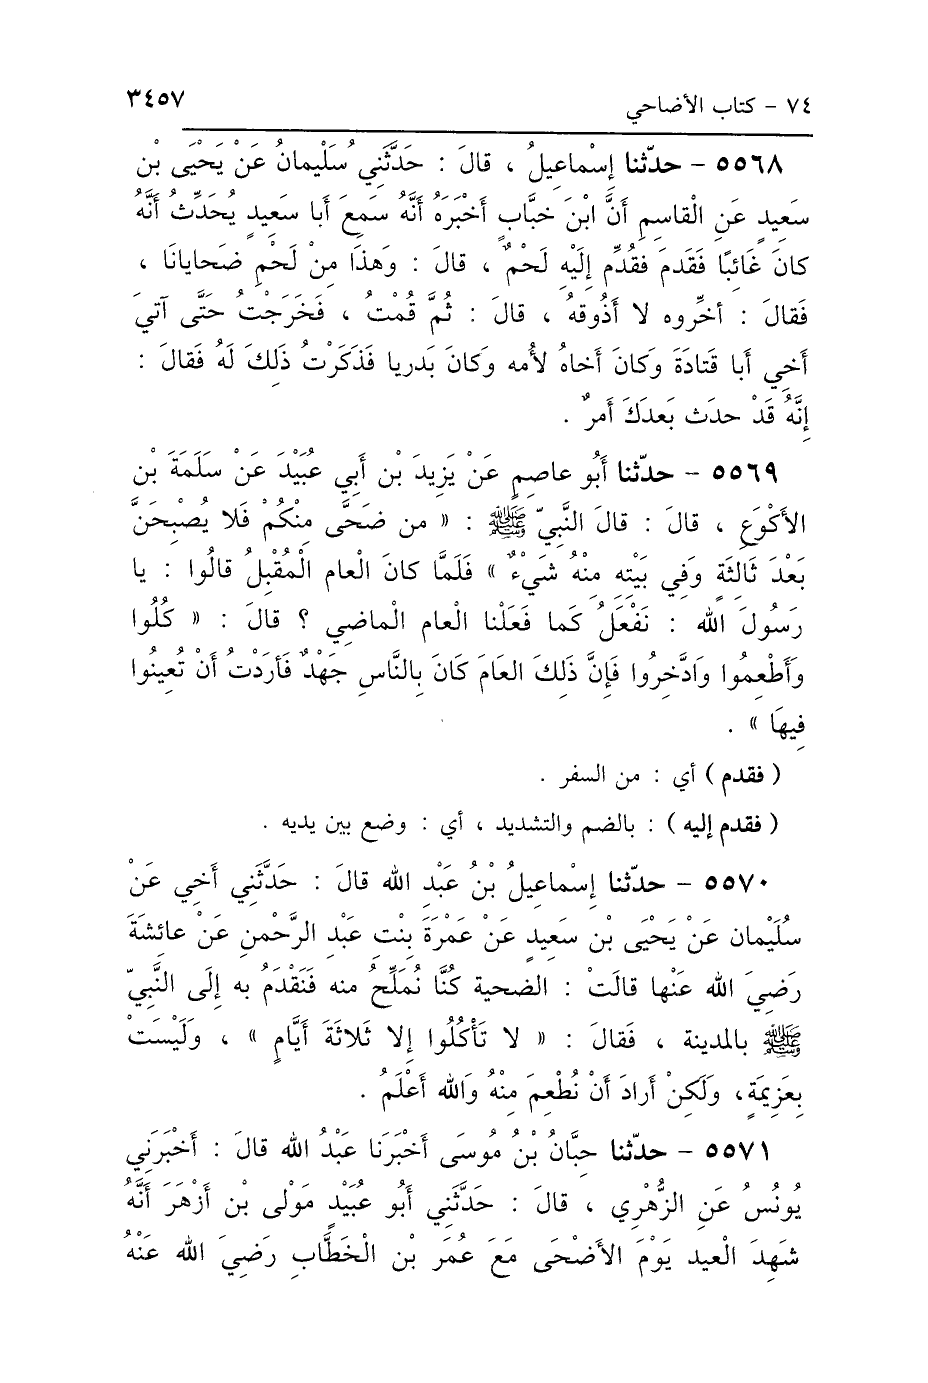 ٧٤ - كتاب الأضاحي ٣٤٥٧
٥٥٦٨ - حدّثنا إسْماعيلُ ، قالَ : حَدَّثَنِي سُلَيْمانُ عَنْ يَحْيَى بْنِ
سَعِيدٍ عَنِ الْقاسِمِ أَنَّ ابْنَ خبَّابٍ أخْبَرَهُ أنَّهُ سَمِعَ أبا سَعِيدٍ يُحَدِّثُ أنَّهُ
كانَ غَائبًا فَقَدمَ فَقُدِّم إلَيْهِ لَحْمٌ ، قالَ : وَهذَا مِنْ لَحْمِ ضَحايانَا ،
فَقالَ : أخِّروه لا أذُوقهُ ، قالَ : ثُمَّ قُمْتُ ، فَخَرَجْتُ حَتَّى آتيَ
أخِي أبا قَتادَةَ وَكانَ أخاهُ لأُمه وَكانَ بَدريا فَذكَرْتُ ذَلِكَ لَهُ فَقالَ :
إنَّهُ قَدْ حدَث بَعدَكَ أَمرٌ .
٥٥٦٩ - حدّثنا أبُو عاصِمٍ عَنْ يَزِيدَ بْنِ أَبِي عُبَيْدَ عَنْ سَلَمَةَ بْنِ
الأكْوَعِ ، قالَ : قالَ النَّبِيّ ﷺ : « من ضَحَّى مِنْكُمْ فَلا يُصْبِحَنَّ
بَعْدَ ثَالثَةٍ وَفي بَيْتِه مِنْهُ شَيْءٌ » فَلَمَّا كانَ الْعام الْمُقْبِلُ قالُوا : يا
رَسُولَ الله : نَفْعَلُ كَما فَعَلْنا الْعام الْماضِي ؟ قالَ : « كُلُوا
وَأَطْعِمُوا وَادَّخِرُوا فَإنَّ ذَلِكَ العَامَ كَانَ بِالنَّاسِ جَهْدٌ فَأرَدْتُ أنْ تُعِينُوا
فِيهَا » .
( فقدم ) أي : من السفر .
( فقدم إليه ) : بالضم والتشديد ، أي : وضع بين يديه .
٥٥٧٠ - حدّثنا إسْماعيلُ بْنُ عَبْدِ الله قالَ : حَدَّثَنِي أخِي عَنْ
سُلَيْمان عَنْ يَحْيَى بْنِ سَعِيدٍ عَنْ عَمْرَةَ بِنْتِ عَبْدِ الرَّحْمنِ عَنْ عائشَةَ
رَضِيَ الله عَنْها قالَتْ : الضحية كُنَّا نُمَلِّحُ منه فَنَقْدَمُ به إلَى النَّبِيّ
ﷺ بالمدينة ، فَقالَ : « لا تَأْكُلُوا إلا ثَلاثَةَ أيَّامٍ » ، وَلَيْسَتْ
بِعَزِيمَةٍ، وَلَكِنْ أرادَ أَنْ نُطْعِمَ مِنْهُ وَالله أَعْلَمُ .
٥٥٧١ - حدّثنا حِبَّانُ بْنُ مُوسَى أخْبَرَنَا عَبْدُ الله قالَ : أخْبَرَنِي
يُونُسُ عَنِ الزُّهْرِي ، قالَ : حَدَّثَنِي أبُو عُبَيْدٍ مَوْلى بْنِ أزْهَرَ أنَّهُ
شَهِدَ الْعِيد يَوْمَ الأَضْحَى مَعَ عُمَر بْنِ الْخَطَّابِ رَضِيَ الله عَنْهُ